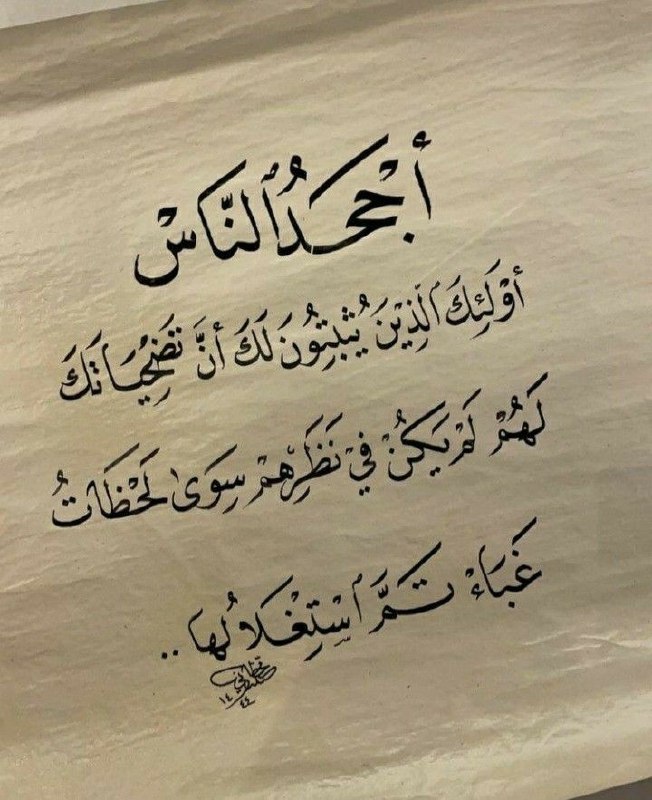 أَجْحَدُ ٱلنَّاسْ
أوْلَئِكَ ٱلَّذِيْنَ يُثْبِتُونَ لَكَ أنَّ تَضْحِيَاتَكَ
لَهُمْ لَمْ يَكُنْ فِيْ نَظَرِهِمْ سِوَى لَحْظَاتُ
غَبَاءْ تَمَّ ٱسْتِغْلَالُها ..
١٤
٤٤